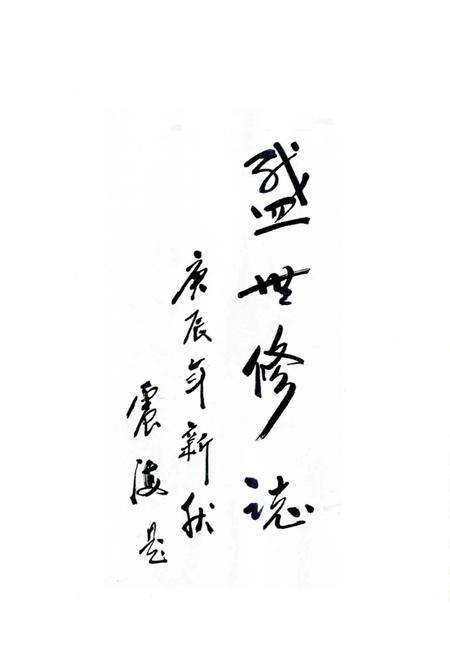 盛世修志
庚辰年新秋
震海题